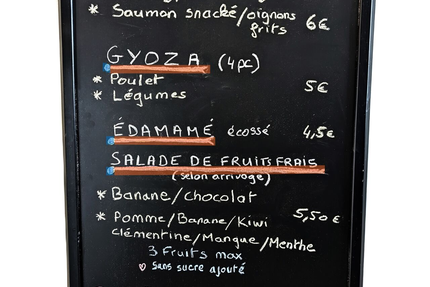 * Saumon snacké/oignons
frits 6€
GYOZA (4pc)
* Poulet
* Légumes 5€
ÉDAMAMÉ écossé 4,5€
SALADE DE FRUITS FRAIS
(selon arrivage)
* Banane/chocolat
* Pomme/Banane/Kiwi 5,50€
Clémentine/Mangue/Menthe
3 Fruits max
♡ Sans sucre ajouté